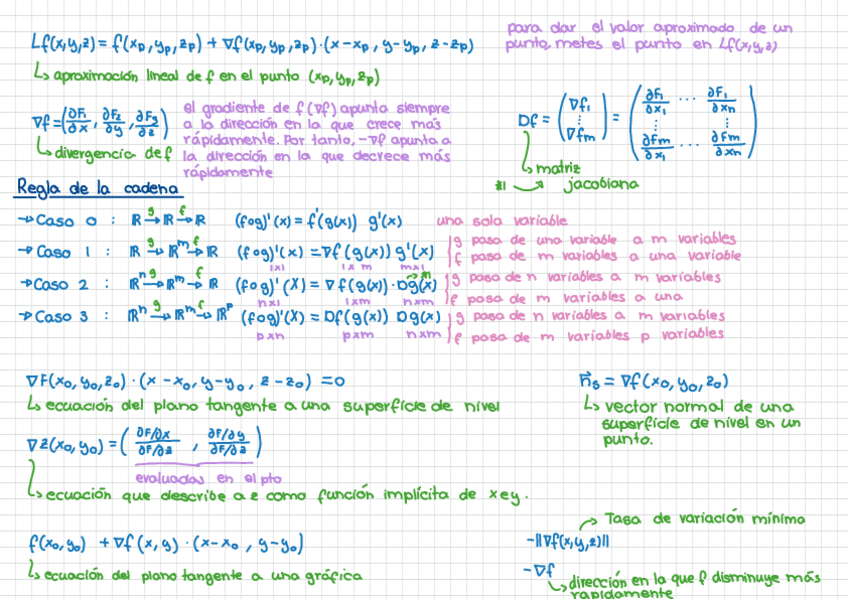 Lf(x,y,z) = f(xp,yp,zp) + ∇f(xp,yp,zp)·(x-xp, y-yp, z-zp)
↳ aproximación lineal de f en el punto (xp,yp,zp)
para dar el valor aproximado de un
punto, metes el punto en Lf(x,y,z)
∇f=(∂F1/∂x, ∂F2/∂y, ∂F3/∂z)
↳ divergencia de f
el gradiente de f (∇f) apunta siempre
a la dirección en la que crece más
rápidamente. Por tanto, -∇f apunta a
la dirección en la que decrece más
rápidamente
Df = (∇f1 ⋮ ∇fm) = (∂F1/∂x1 ... ∂F1/∂xn ⋮ ⋮ ∂Fm/∂x1 ... ∂Fm/∂xn)
↳ matriz
jacobiana
*1
Regla de la cadena
→ Caso 0 : R g→ R f→ R (fog)'(x) = f'(g(x)) g'(x) una sola variable
→ Caso 1 : R g→ R^m f→ R (fog)'(x) = ∇f(g(x)) g'(x)
1x1 1xm mx1
g pasa de una variable a m variables
f pasa de m variables a una variable
→ Caso 2 : R^n g→ R^m f→ R (fog)'(X) = ∇f(g(x))·Dg(x) *1
nx1 1xm nxm
g pasa de n variables a m variables
f pasa de m variables a una
→ Caso 3 : R^n g→ R^m f→ R^p (fog)'(X) = Df(g(x)) Dg(x)
pxn pxm nxm
g pasa de n variables a m variables
f pasa de m variables p variables
∇F(x0,y0,z0)·(x-x0, y-y0, z-z0) = 0
↳ ecuación del plano tangente a una superfície de nivel
n⃗s = ∇f(x0,y0,z0)
↳ vector normal de una
superfície de nivel en un
punto.
∇z(x0,y0) = (∂F/∂x / ∂F/∂z , ∂F/∂y / ∂F/∂z)
evaluadas en el pto
↳ ecuación que describe a z como función implícita de x e y.
f(x0,y0) + ∇f(x,y)·(x-x0, y-y0)
↳ ecuación del plano tangente a una gráfica
→ Tasa de variación mínima
-||∇f(x,y,z)||
-∇f
↳ dirección en la que f disminuye más
rapidamente